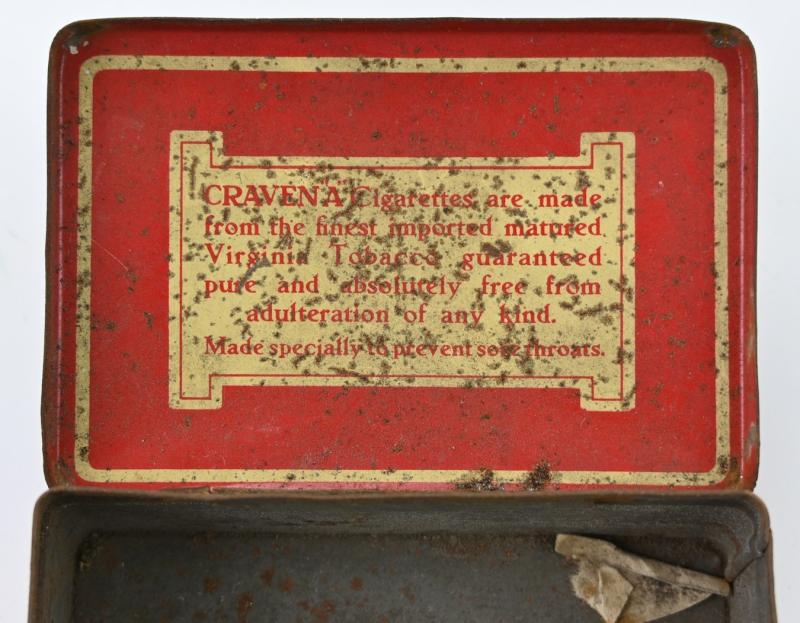 CRAVEN "A" Cigarettes are made
from the finest imported matured
Virginia Tobacco guaranteed
pure and absolutely free from
adulteration of any kind.
Made specially to prevent sore throats.